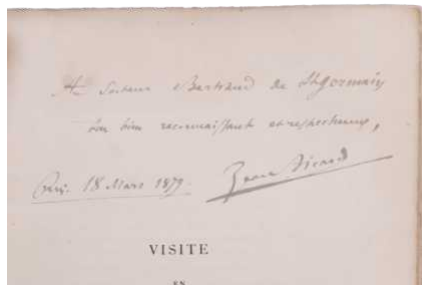 Docteur Bertrand de St Germain
bien reconnaissant et respectueux,
Paris. 18 Mars 1879.
VISITE
EN